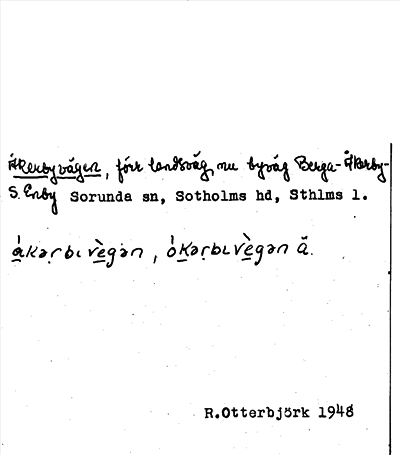 Åkerbyvägen, förr landsväg, nu byväg Berga-Åkerby-
S. Enby Sorunda sn, Sotholms hd, Sthlms l.
ákərbɩ vègən, ókərbɩvègən ã.
R.Otterbjörk 1948